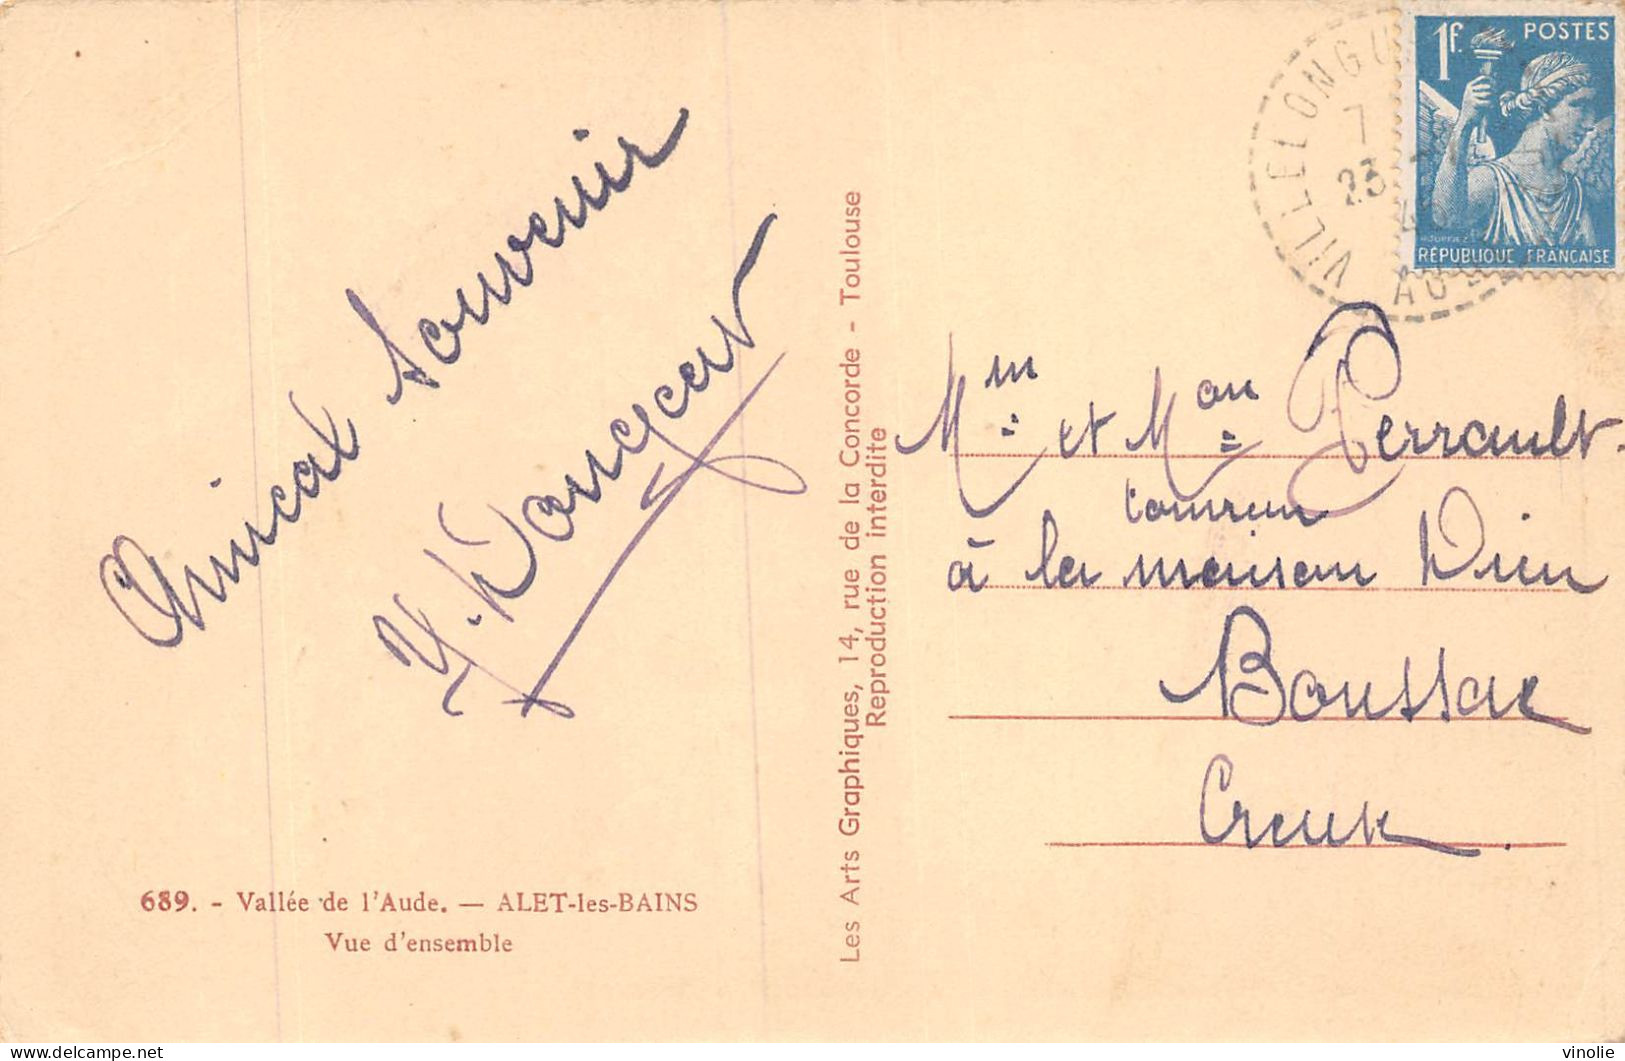 Amical souvenir
689. - Vallée de l'Aude. — ALET-les-BAINS
Vue d'ensemble
Les Arts Graphiques, 14, rue de la Concorde - Toulouse
Reproduction interdite
1f. POSTES
RÉPUBLIQUE FRANÇAISE
VILLELONGU
7
23
AUDE
Mm et Mau Perrault
à la maison Dieu
Boussac
Creuse
delcampe.net
vinolie